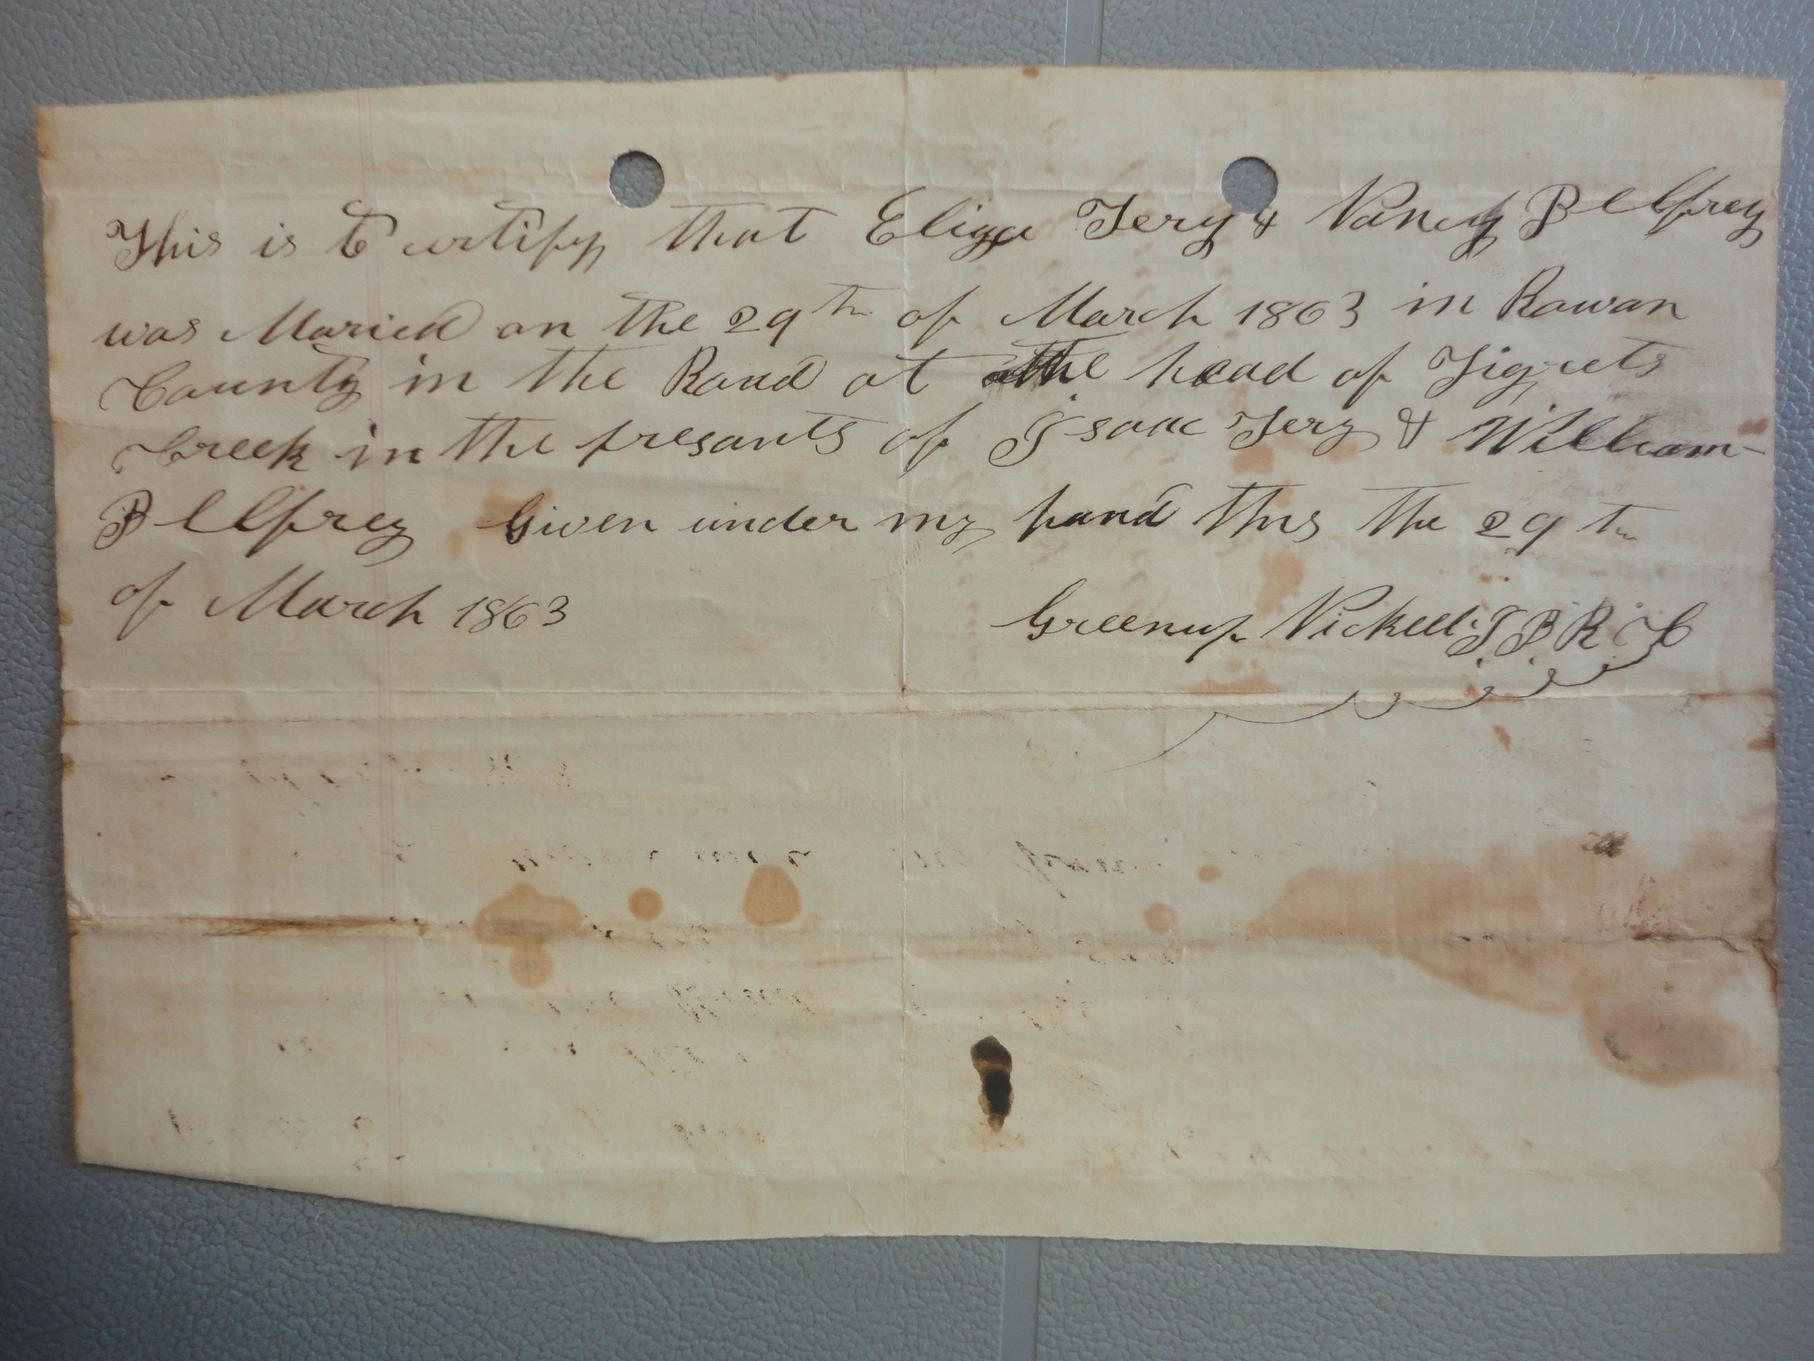 This is to certify that Eliga Tery & Nancy Pelfrey
was Maried on the 29th of March 1863 in Rowan
County in the Road at the head of
Creek in the presants of Isaac Tery & William
Pelfrey Given under my hand this the 29th
of March 1863 Greenup Nickell J.P.R.C